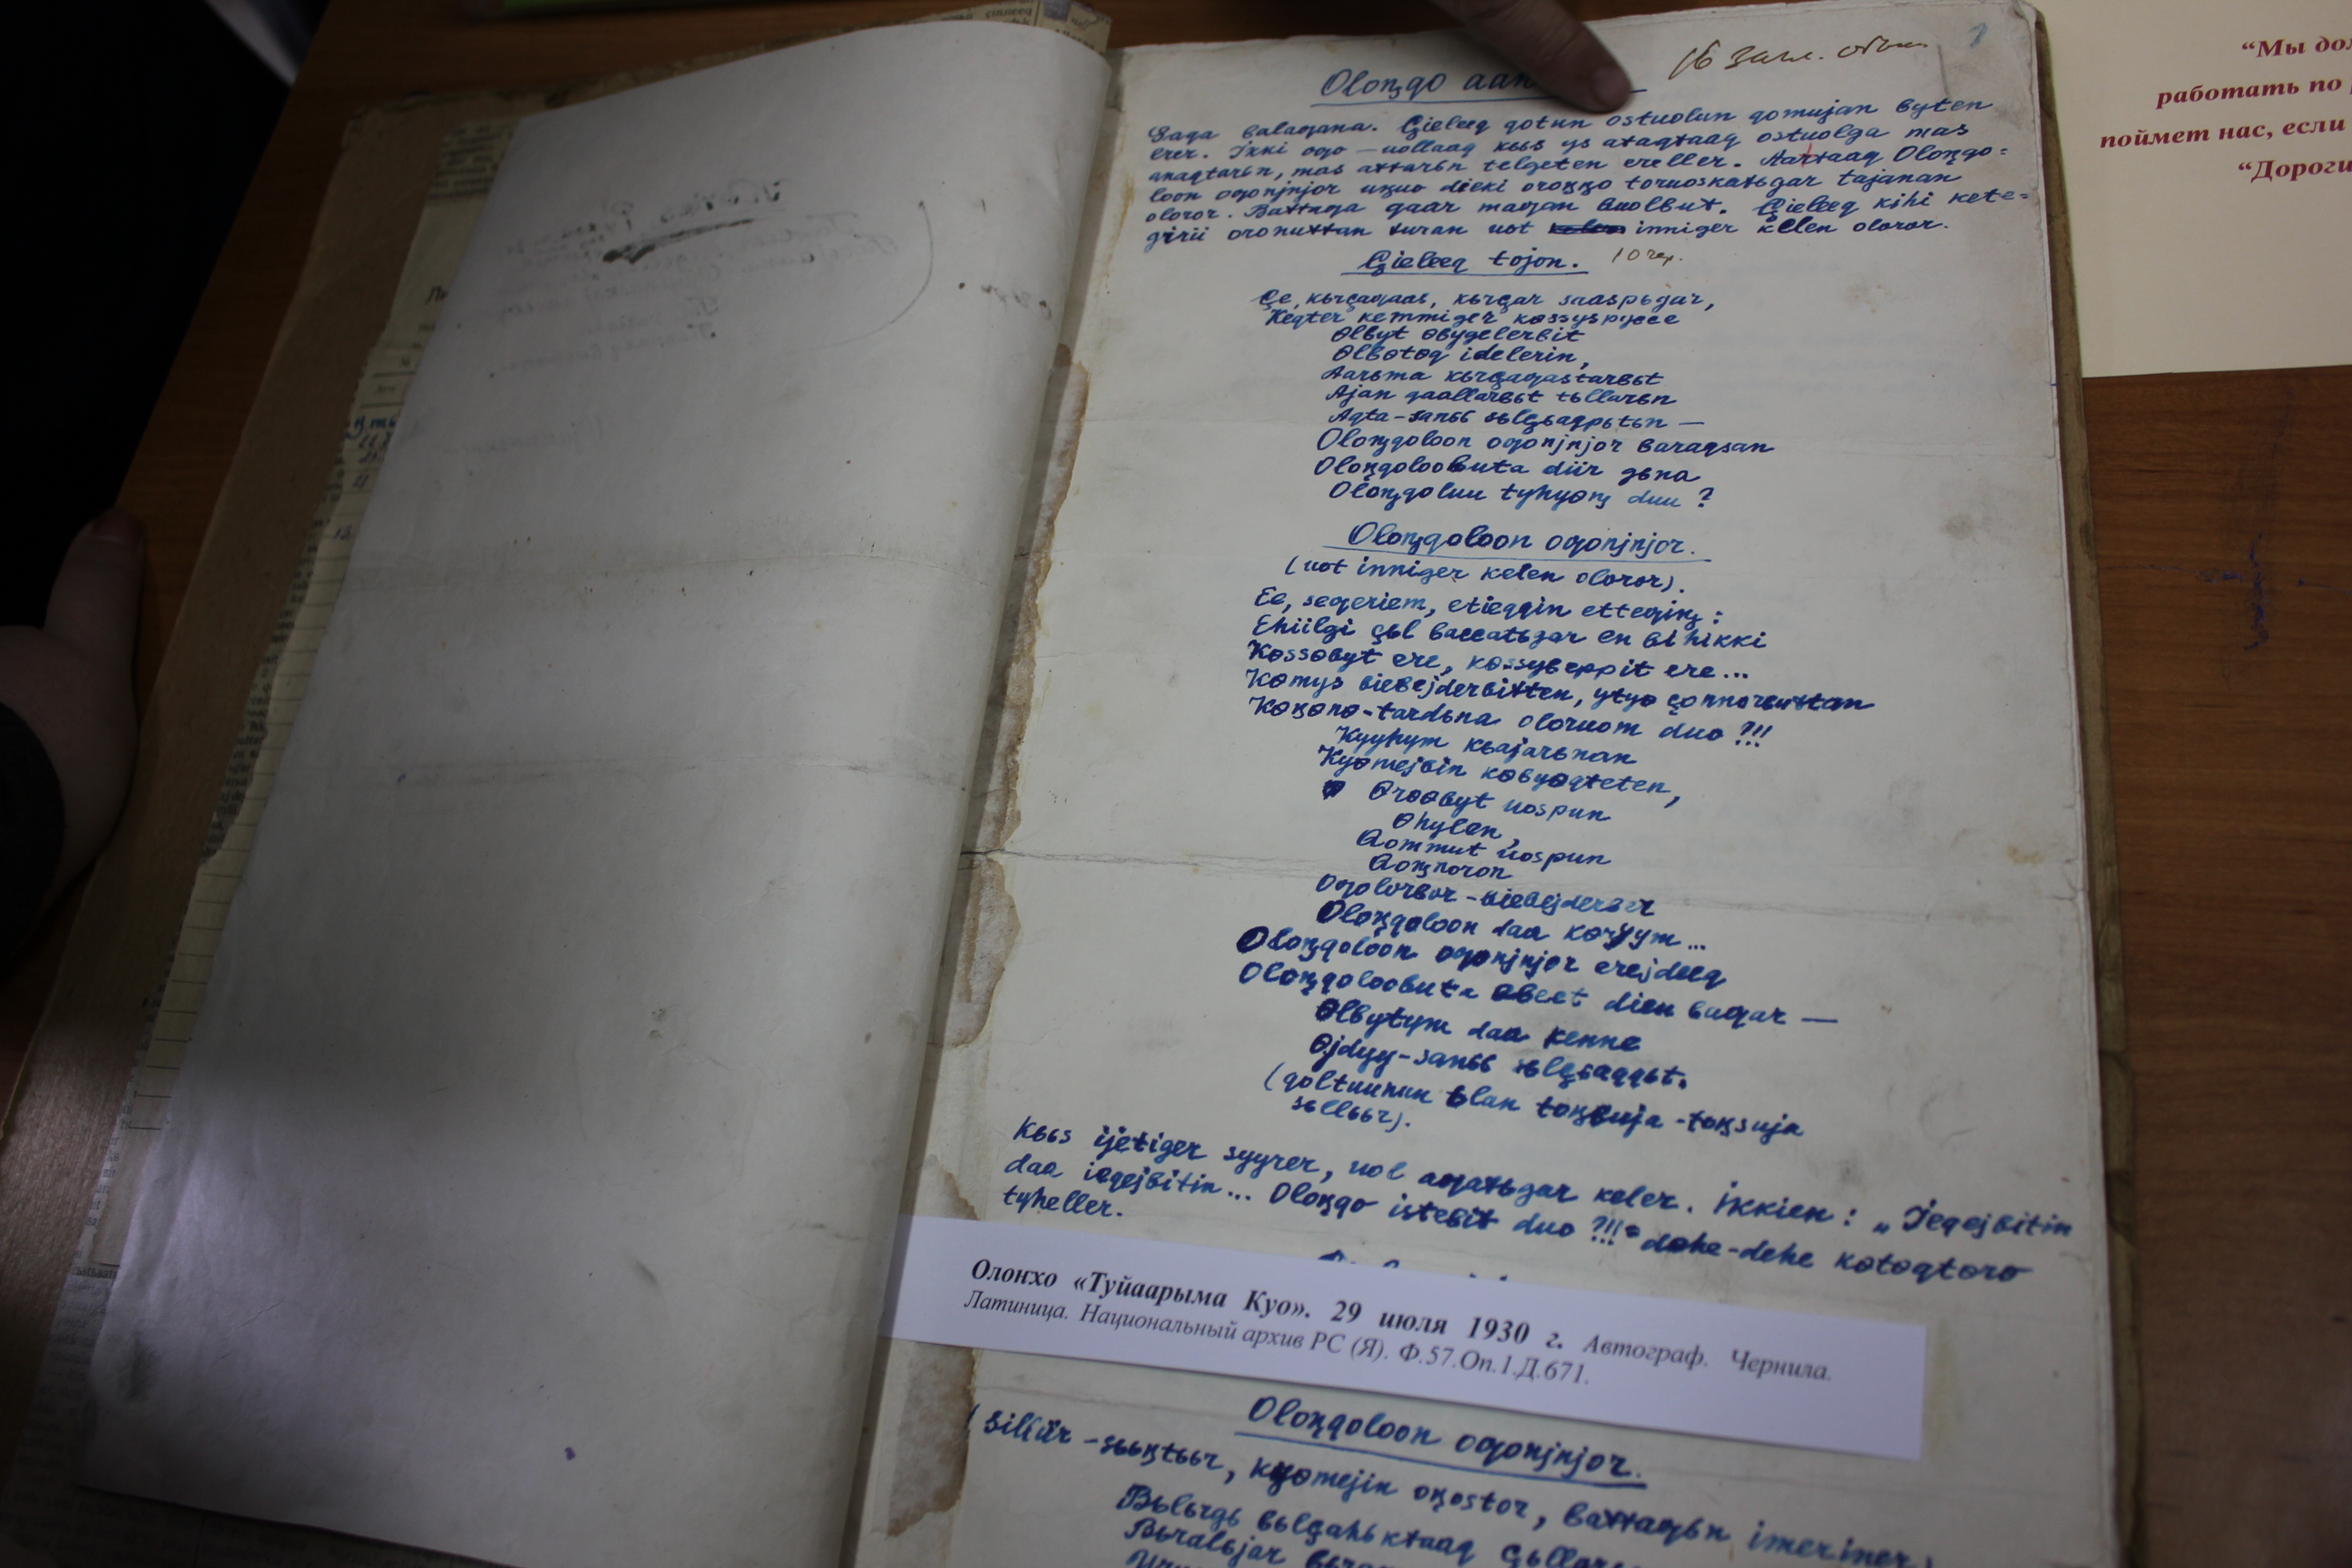 16 зал.
Oloꞑqo aan
Saqa balaƣana. Çieleeq qotun ostuolun qomujan byten
erer. Ikki oƣo — uollaaq kььs ys ataqtaaq ostuolga mas
anaqtarьn, mas attarьn telgeten ereller. Aartaaq Oloꞑqo=
loon oƣonjnjor uꞑuo dieki oroꞑꞑo toruoskatьgar tajanan
oloror. Battaƣa qaar maƣan buolbut. Çieleeq kihi kete=
girii oronuttan turan uot inniger kelen oloror.
Çieleeq tojon.
Çe, kьrçaƣaas, kьrçar saaspьgar,
Keqter kemmiger kɵssyspyççe
Ɵlbyt ɵbygelerbit
Ɵlbɵtɵq idelerin,
Aarьma kьrçaƣastarbьt
Ajan qaallarbьt tьllarьn
Aqta-sanьь sьlçьaqpьtьn —
Oloꞑqoloon oƣonjnjor baraqsan
Oloꞑqoloobuta diir gьna
Oloꞑqoluu tyhyɵꞑ duu ?
Oloꞑqoloon oƣonjnjor.
(uot inniger kelen oloror).
Ee, seƣeriem, etieqqin etteƣiꞑ :
Ehiilgi çьl baccatьgar en bihikki
Kɵssɵbyt ere, kɵssybeppit ere...
Kɵmys biebejderbitten, ytyɵ çonnorbuttan
Kɵꞑɵnɵ-tardьna oloruom duo ?!!
Kyyhym kьajarьnan
Kyɵmejbin kɵbyɵqteten,
Ɵrɵɵbyt uospun
Ɵhylen,
Qommut uospun
Qoꞑnoron
Oƣolorbor-biebejderber
Oloꞑqoloon daa kɵryym...
Oloꞑqoloon oƣonjnjor erejdeeq
Oloꞑqoloobuta ebeet dien buƣar —
Ɵlbytym daa kenne
Ɵjdyy-sanьь sьlçьaqqьt.
(qoltuunun ьlan toꞑsuja-toꞑsuja
sьllььr).
Kььs ijetiger syyrer, uol aƣatьgar keler. Ikkien : „Ieqejbitin
daa ieqejbitin... Oloꞑqo istebit duo ?!!" dehe-dehe kɵtɵqtɵrɵ
tyheller.
Олоҥхо «Туйаарыма Куо». 29 июля 1930 г. Автограф. Чернила.
Латиница. Национальный архив РС (Я). Ф.57.Оп.1.Д.671.
Oloꞑqoloon oƣonjnjor.
(Siliir-sььꞑtььr, kyɵmejin oꞑostor, battaƣьn imeriner)
Bьlьrgь bьlçahьktaaq
“Мы
работать по
поймет нас, если
“Дороги